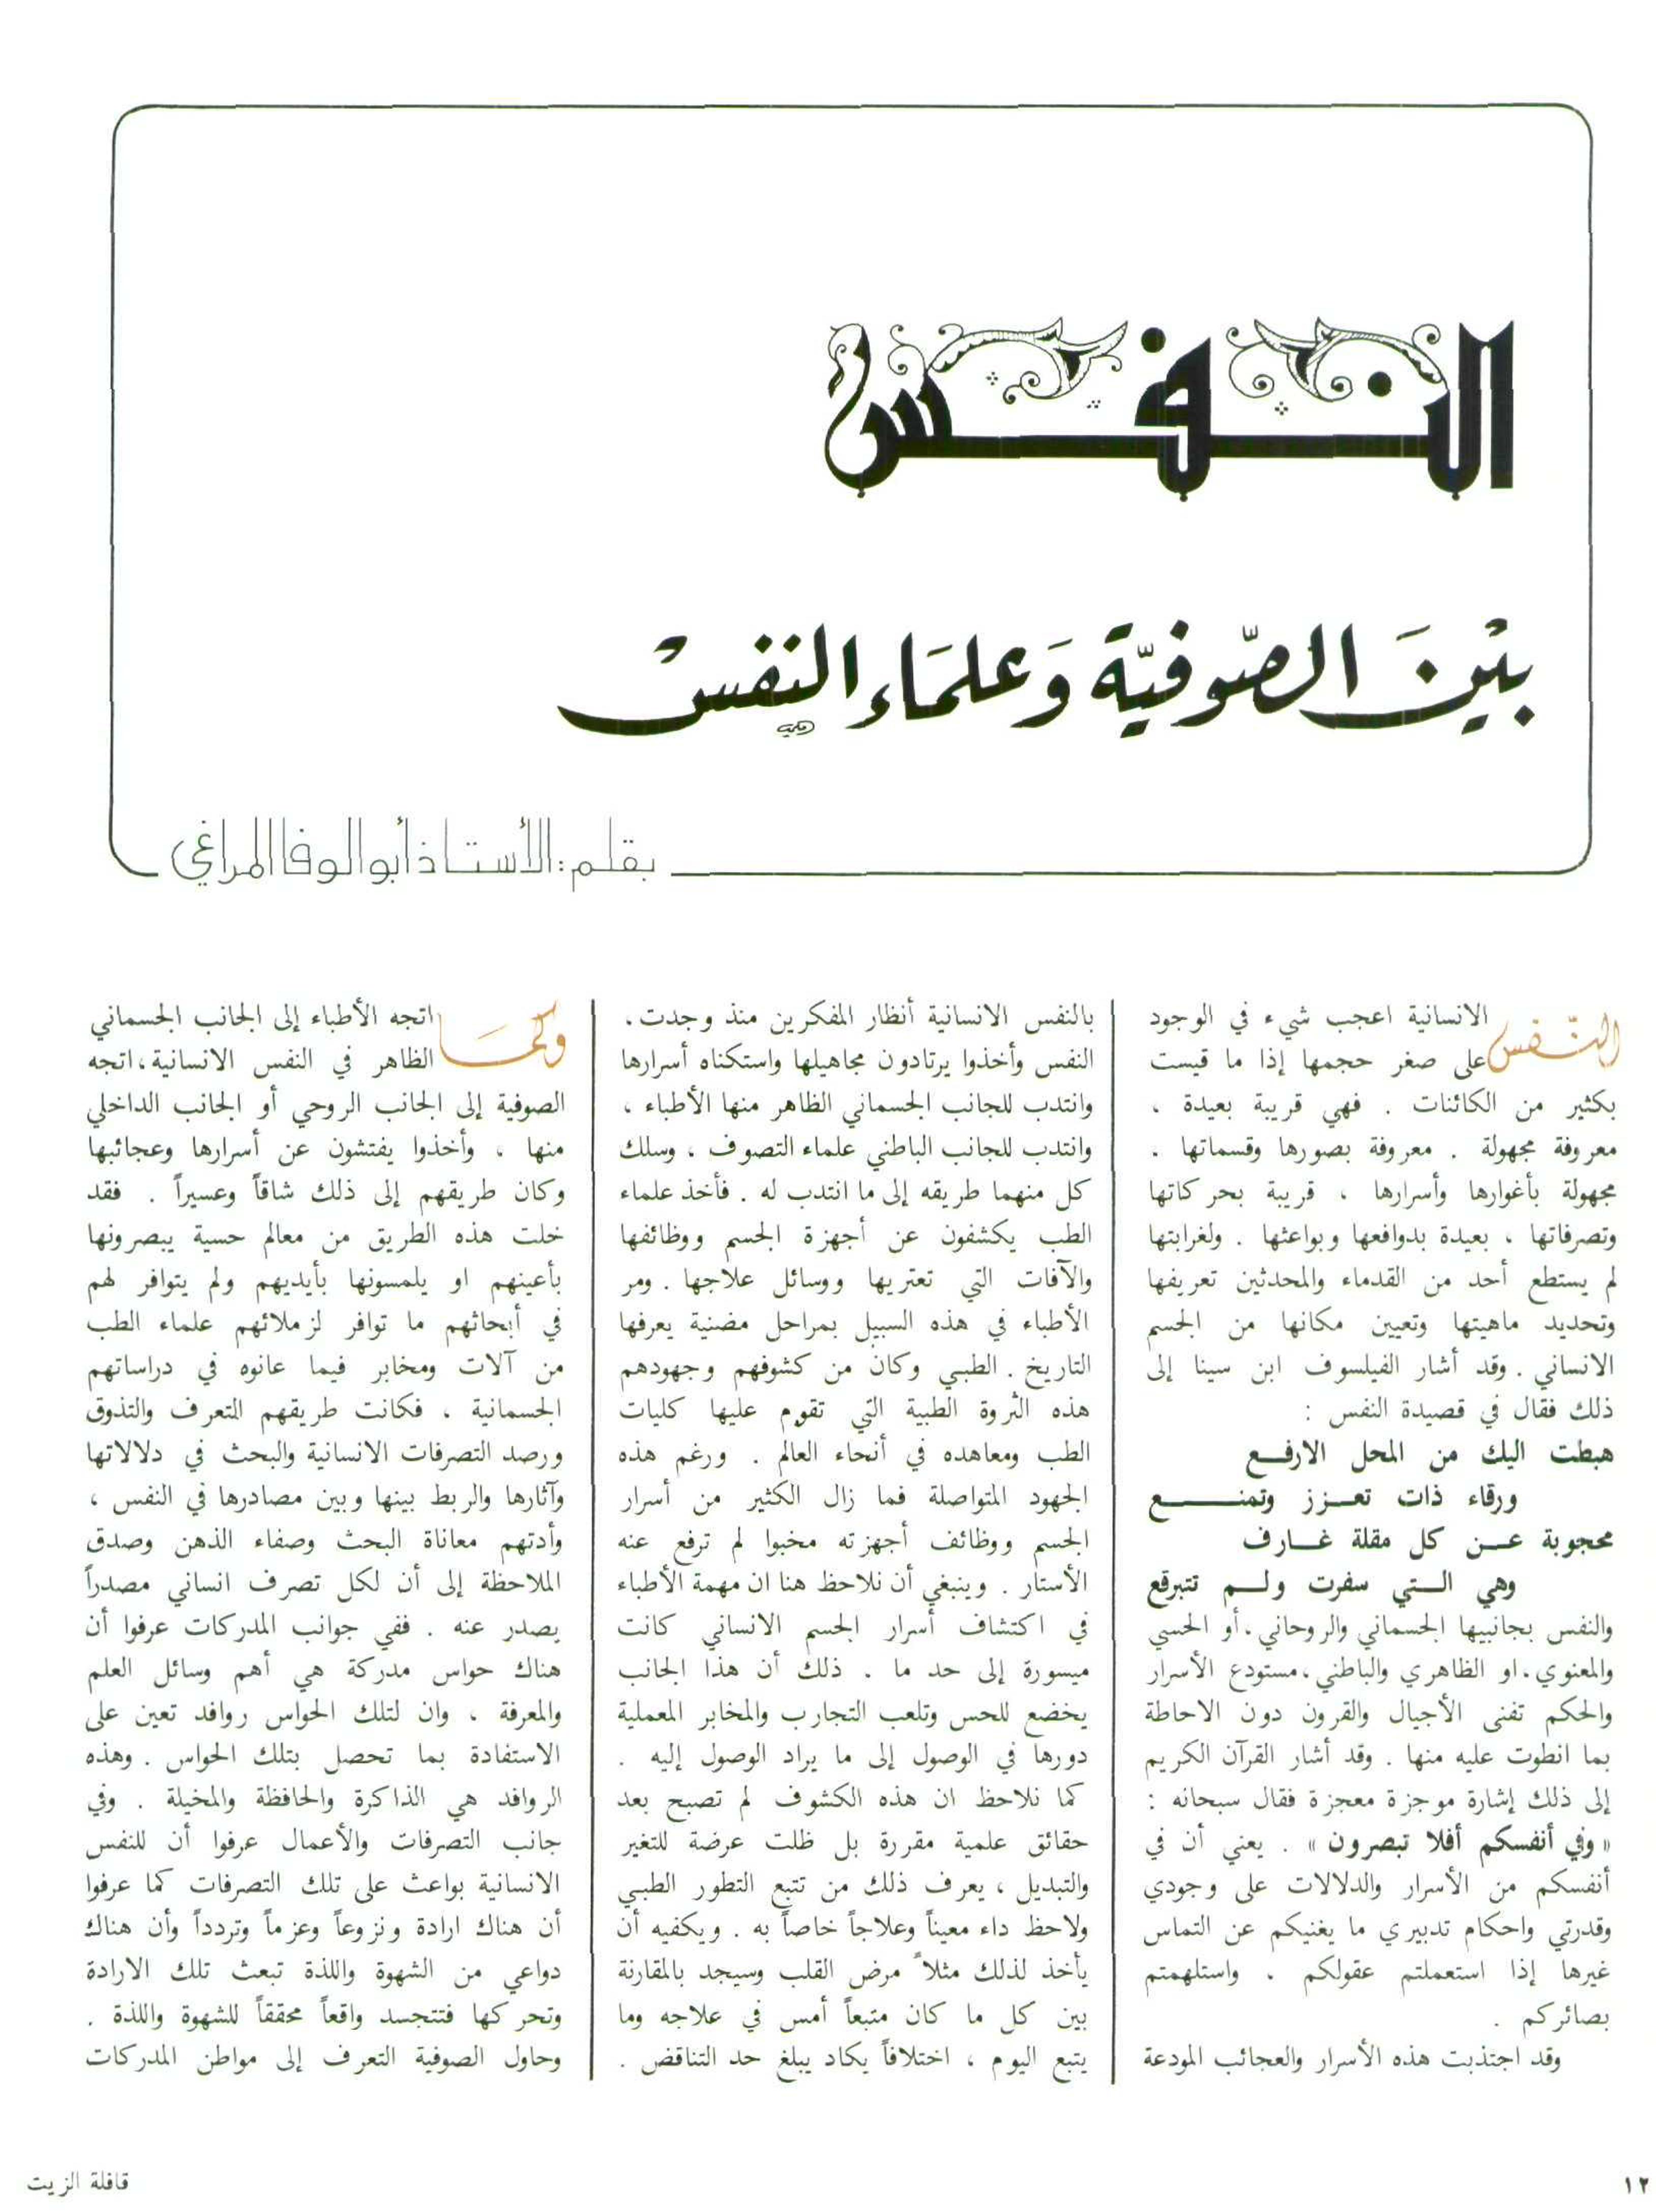 النفس
بين الصوفية وعلماء النفس
بقلم: الأستاذ أبو الوفا المراغي
النفس الانسانية اعجب شيء في الوجود
على صغر حجمها إذا ما قيست
بكثير من الكائنات . فهي قريبة بعيدة ،
معروفة مجهولة . معروفة بصورها وقسماتها .
مجهولة بأغوارها وأسرارها ، قريبة بحركاتها
وتصرفاتها ، بعيدة بدوافعها وبواعثها . ولغرابتها
لم يستطع أحد من القدماء والمحدثين تعريفها
وتحديد ماهيتها وتعيين مكانها من الجسم
الانساني . وقد أشار الفيلسوف ابن سينا إلى
ذلك فقال في قصيدة النفس :
هبطت اليك من المحل الارفع
ورقاء ذات تعزز وتمنع
محجوبة عن كل مقلة غارف
وهي التي سفرت ولم تتبرقع
والنفس بجانبيها الجسماني والروحاني ، أو الحسي
والمعنوي ، او الظاهري والباطني ، مستودع الأسرار
والحكم تفنى الأجيال والقرون دون الاحاطة
بما انطوت عليه منها . وقد أشار القرآن الكريم
إلى ذلك إشارة موجزة معجزة فقال سبحانه :
« وفي أنفسكم أفلا تبصرون » . يعني أن في
أنفسكم من الأسرار والدلالات على وجودي
وقدرتي واحكام تدبيري ما يغنيكم عن التماس
غيرها إذا استعملتم عقولكم . واستلهمتم
بصائركم .
وقد اجتذبت هذه الأسرار والعجائب المودعة
بالنفس الانسانية أنظار المفكرين منذ وجدت .
النفس وأخذوا يرتادون مجاهيلها واستكناه أسرارها
وانتدب للجانب الجسماني الظاهر منها الأطباء ،
وانتدب للجانب الباطني علماء التصوف ، وسلك
كل منهما طريقه إلى ما انتدب له . فأخذ علماء
الطب يكشفون عن أجهزة الجسم ووظائفها
والآفات التي تعتريها ووسائل علاجها . ومر
الأطباء في هذه السبيل بمراحل مضنية يعرفها
التاريخ . الطبي وكان من كشوفهم وجهودهم
هذه الثروة الطبية التي تقوم عليها كليات
الطب ومعاهده في أنحاء العالم . ورغم هذه
الجهود المتواصلة فما زال الكثير من أسرار
الجسم ووظائف أجهزته مخبوا لم ترفع عنه
الأستار . وينبغي أن نلاحظ هنا ان مهمة الأطباء
في اكتشاف أسرار الجسم الانساني كانت
ميسورة إلى حد ما . ذلك أن هذا الجانب
يخضع للحس وتلعب التجارب والمخابر المعملية
دورها في الوصول إلى ما يراد الوصول إليه .
كما نلاحظ ان هذه الكشوف لم تصبح بعد
حقائق علمية مقررة بل ظلت عرضة للتغير
والتبديل ، يعرف ذلك من تتبع التطور الطبي
ولاحظ داء معيناً وعلاجاً خاصاً به . ويكفيه أن
يأخذ لذلك مثلاً مرض القلب وسيجد بالمقارنة
بين كل ما كان متبعاً أمس في علاجه وما
يتبع اليوم ، اختلافاً يكاد يبلغ حد التناقض .
وكما اتجه الأطباء إلى الجانب الجسماني
الظاهر في النفس الانسانية ، اتجه
الصوفية إلى الجانب الروحي أو الجانب الداخلي
منها ، وأخذوا يفتشون عن أسرارها وعجائبها
وكان طريقهم إلى ذلك شاقاً وعسيراً . فقد
خلت هذه الطريق من معالم حسية يبصرونها
بأعينهم او يلمسونها بأيديهم ولم يتوافر لهم
في أبحاثهم ما توافر لزملائهم علماء الطب
من آلات ومخابر فيما عانوه في دراساتهم
الجسمانية . فكانت طريقهم التعرف والتذوق
ورصد التصرفات الانسانية والبحث في دلالاتها
وآثارها والربط بينها وبين مصادرها في النفس ،
وأدتهم معاناة البحث وصفاء الذهن وصدق
الملاحظة إلى أن لكل تصرف انساني مصدراً
يصدر عنه . ففي جوانب المدركات عرفوا أن
هناك حواس مدركة هي أهم وسائل العلم
والمعرفة ، وان لتلك الحواس روافد تعين على
الاستفادة بما تحصل بتلك الحواس . وهذه
الروافد هي الذاكرة والحافظة والمخيلة . وفي
جانب التصرفات والأعمال عرفوا أن للنفس
الانسانية بواعث على تلك التصرفات كما عرفوا
أن هناك ارادة ونزوعاً وعزماً وتردداً وأن هناك
دواعي من الشهوة واللذة تبعث تلك الارادة
وتحركها فتتجسد واقعاً محققاً للشهوة واللذة .
وحاول الصوفية التعرف إلى مواطن المدركات
١٢
قافلة الزيت